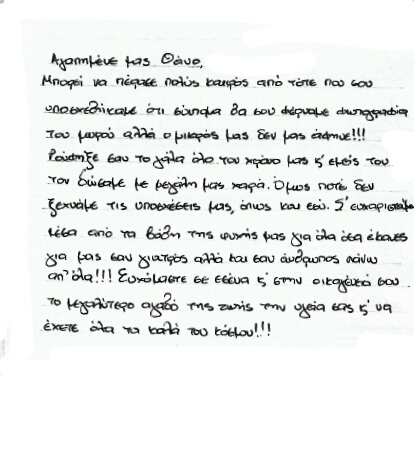 Αγαπημένε μας Θάνο,
Μπορεί να πέρασε πολύς καιρός από τότε που σου
υποσχεθήκαμε ότι σύντομα θα σου φέρναμε φωτογραφία
του μωρού αλλά ο μικρός μας δεν μας άφηνε!!!
Ρούφηξε σαν το γάλα όλο τον χρόνο μας κ' εμείς του
τον δώσαμε με μεγάλη μας χαρά. Όμως ποτέ δεν
ξεχνάμε τις υποσχέσεις μας, όπως και εσύ. Σ' ευχαριστούμε
μέσα από τα βάθη της ψυχής μας για όλα όσα έκανες
για μας σαν γιατρός αλλά και σαν άνθρωπος πάνω
απ' όλα!!! Ευχόμαστε σε εσένα κ' στην οικογένειά σου
το μεγαλύτερο αγαθό της ζωής την υγεία σας κ' να
έχετε όλα τα καλά του κόσμου!!!